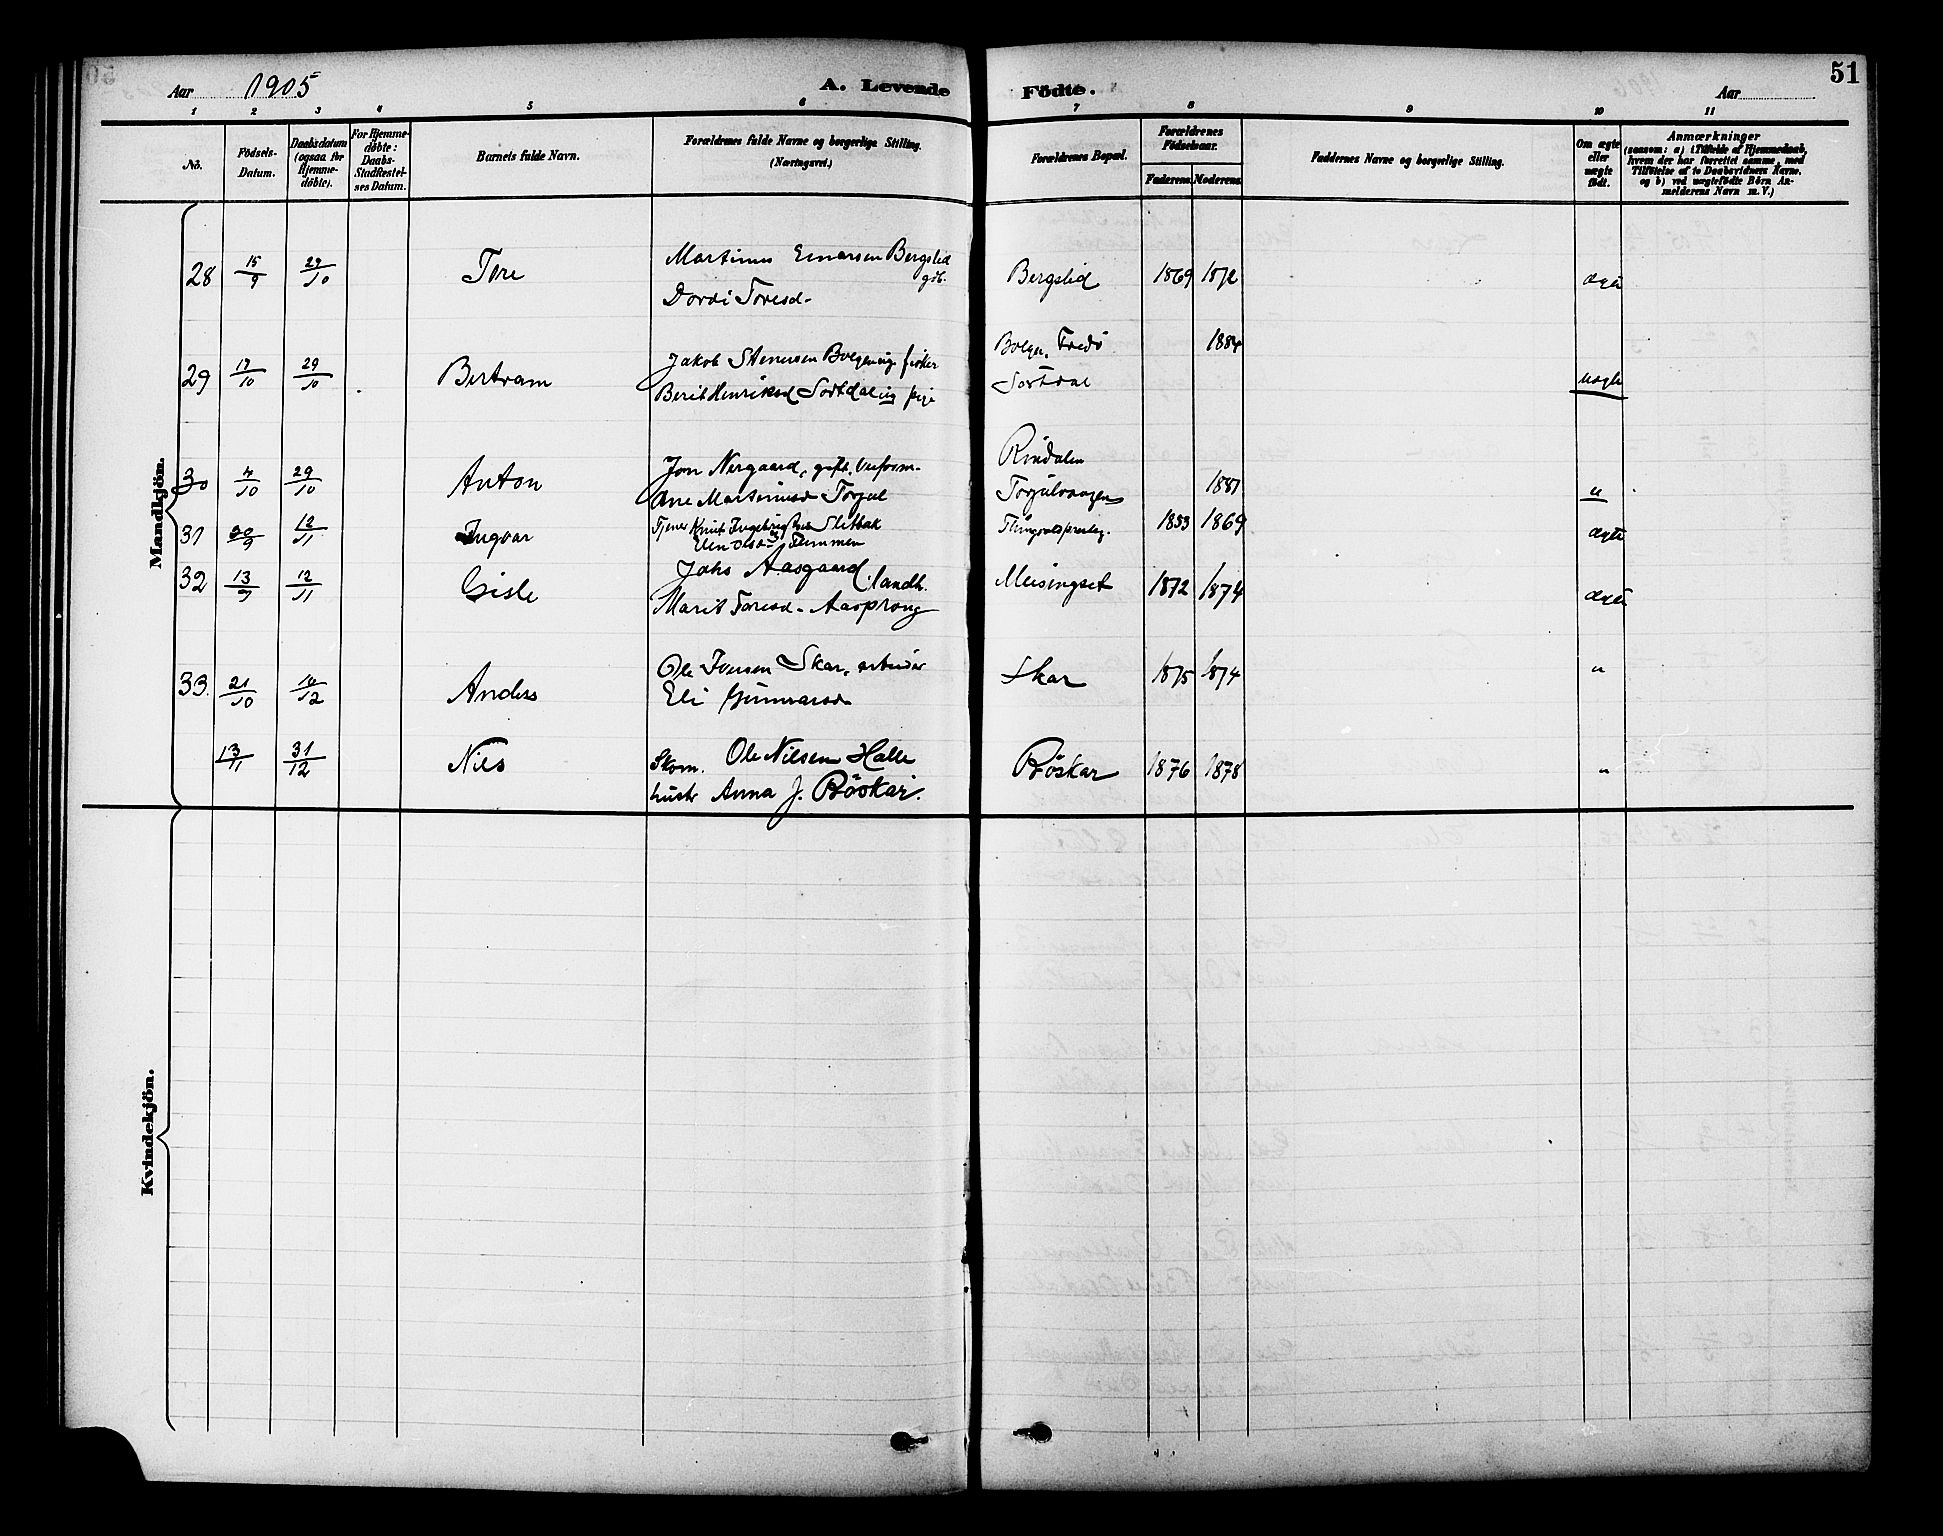 51
Aar 1905 A. Levende Födte. Aar
1 2 3 4 5 6 7 8 9 10 11
No. Födsels-Datum. Daabsdatum (ogsaa for Hjemme-döbte). For Hjemme-döbte: Daabs-Stadfestel-ses Datum. Barnets fulde Navn. Forældrenes fulde Navne og borgerlige Stilling. (Næringsvei.) Forældrenes Bopæl. Forældrenes Födselsaar. Faderens. Moderens. Faddernes Navne og borgerlige Stilling. Om ægte eller uægte födt. Anmærkninger (saasom: a) i Tilfælde af Hjemmedaab, hvem der har forrettet samme, med Tilföielse af to Daabsvidners Navne, og b) ved uægtefödte Börn Anmelderens Navn m. V.)
Mandkjön.
28 15/9 29/10 Tore Martinus Einarsen Bergslid gdb. Bergslid 1869 1872 ægte
Dordi Toresd.
29 17/10 29/10 Bertram Jakob Stenersen fisker Fredö 1884 uægte
Berit Henriksd Sortdal ug pige Sortdal
30 4/10 29/10 Anton Jon Nergaard, gift, Rindalen
Ane Martinusd Torjul Torjulvaagen 1881 "
31 9 12/11 Ingvar Tjener Knut Slatbak 1853 1869 ægte
Flemmen
32 13/9 12/11 Gisle Johs Aasgaard, landh. Meisingset 1872 1874 ægte
Marit Toresd. Aasprong
33. 21/10 10/12 Anders Ole Iversen Skar, arbeider Skar 1875 1874 "
Eli Gunnarsd
13/11 31/12 Nils Skom. Ole Nilsen Halle Röskar 1876 1878 "
hustr Anna J. Röskar.
Kvindekjön.